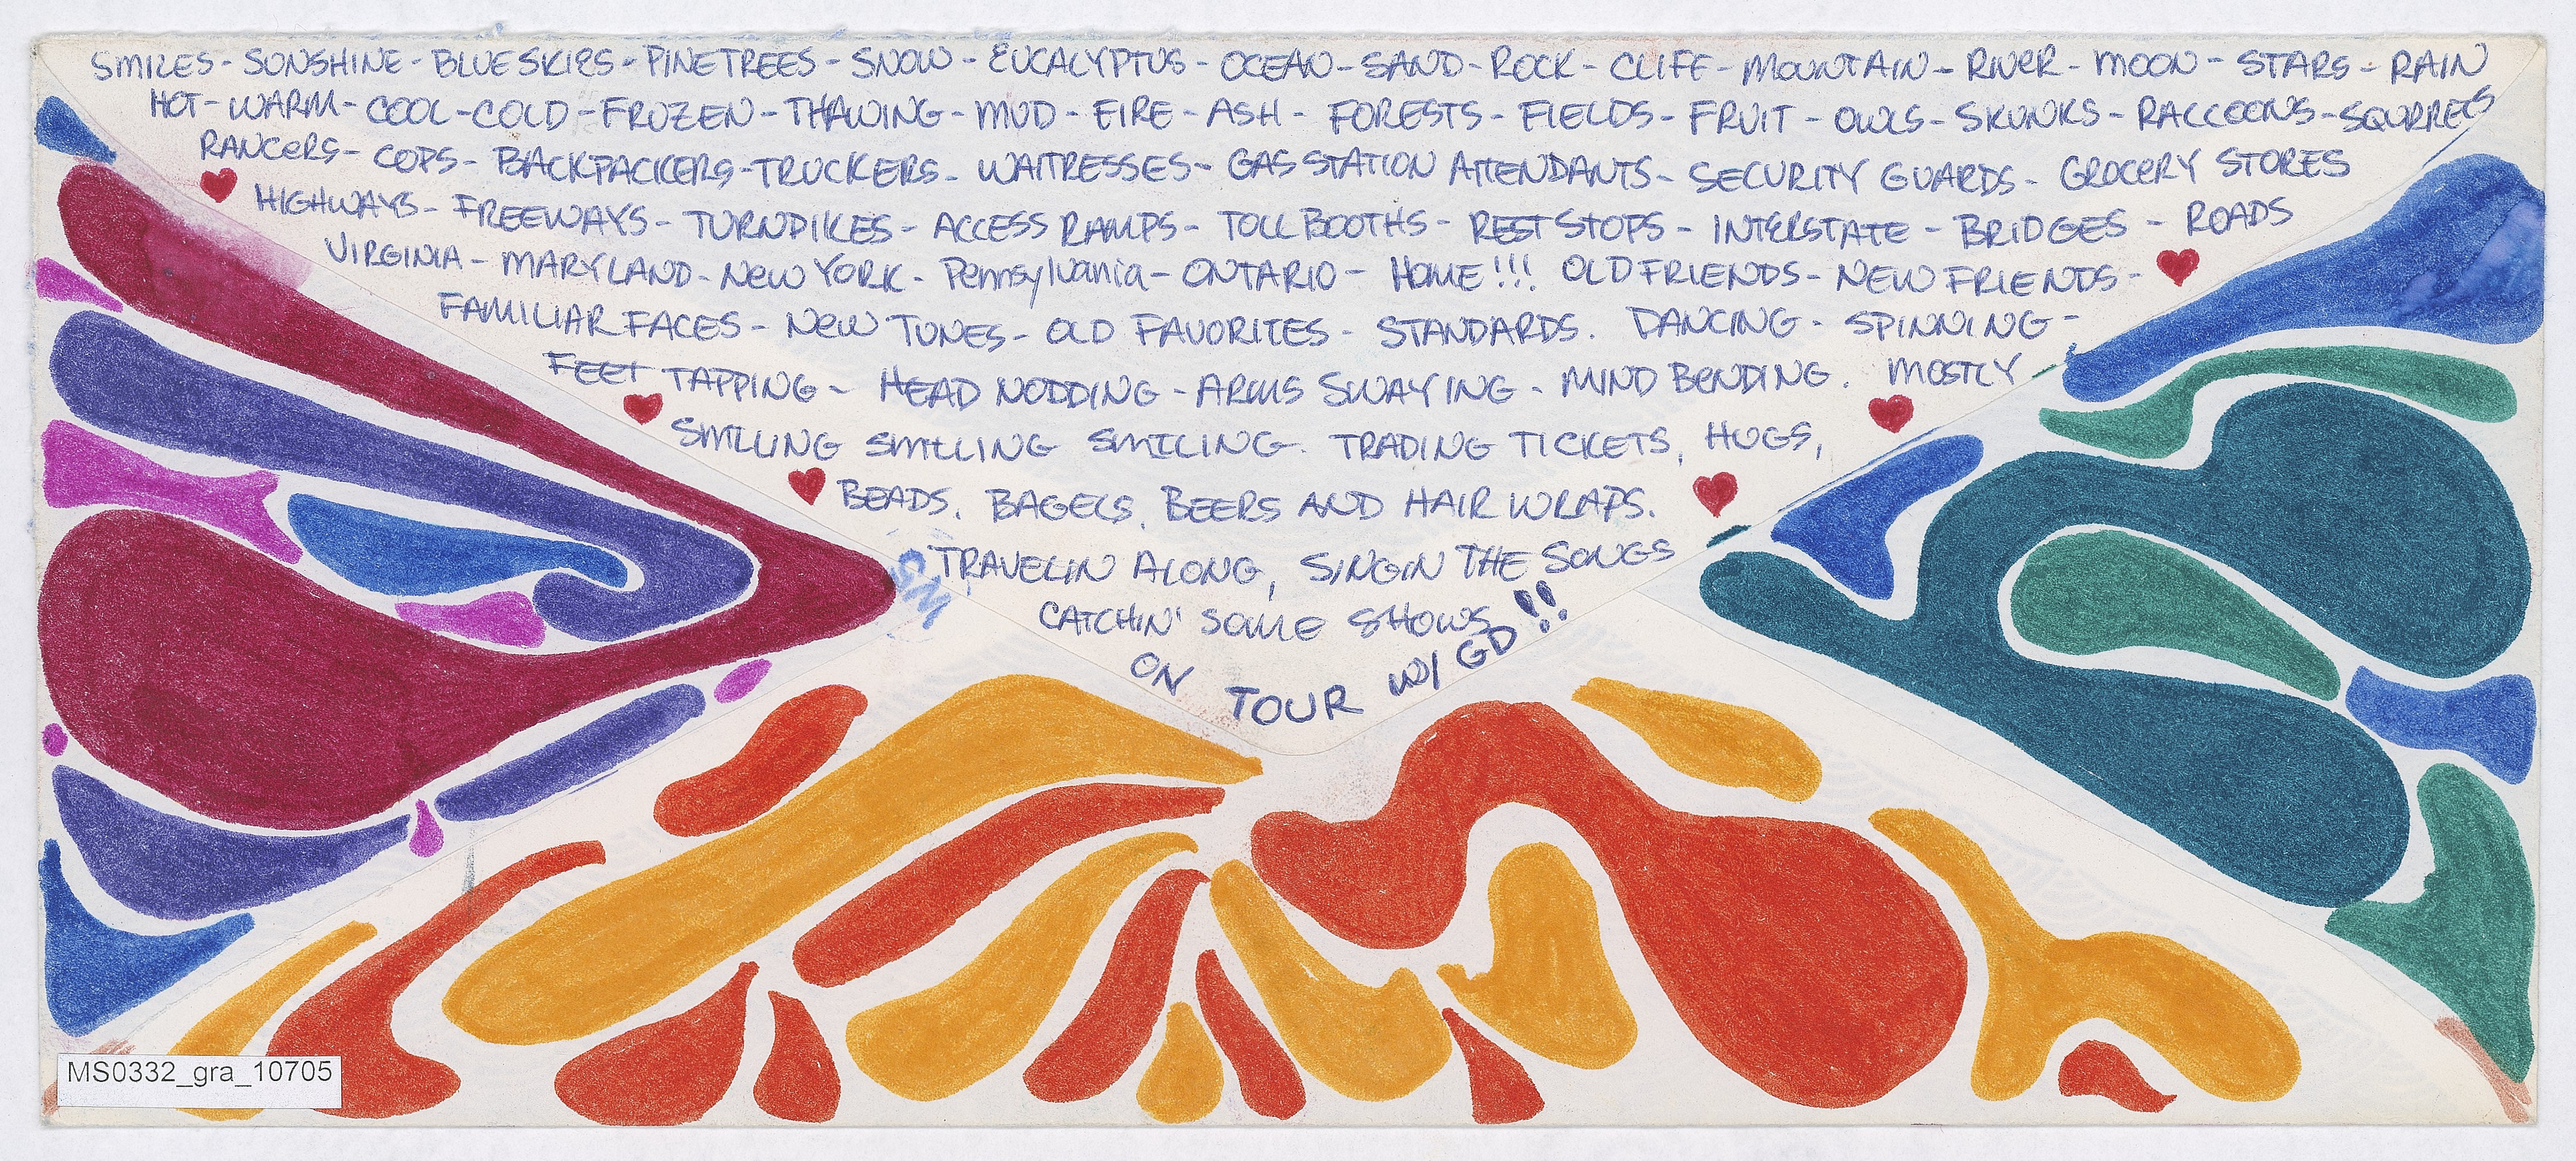 SMILES - SONSHINE - BLUE SKIES - PINETREES - SNOW - EUCALYPTUS - OCEAN - SAND - ROCK - CLIFF - MOUNTAIN - RIVER - MOON - STARS - RAIN
HOT - WARM - COOL - COLD - FROZEN - THAWING - MUD - FIRE - ASH - FORESTS - FIELDS - FRUIT - OWLS - SKUNKS - RACCOONS - SQUIRRELS
RANGERS - COPS - BACKPACKERS - TRUCKERS - WAITRESSES - GAS STATION ATTENDANTS - SECURITY GUARDS - GROCERY STORES
HIGHWAYS - FREEWAYS - TURNPIKES - ACCESS RAMPS - TOLL BOOTHS - REST STOPS - INTERSTATE - BRIDGES - ROADS
VIRGINIA - MARYLAND - NEW YORK - Pennsylvania - ONTARIO - HOME!!! OLD FRIENDS - NEW FRIENDS -
FAMILIAR FACES - NEW TUNES - OLD FAVORITES - STANDARDS. DANCING - SPINNING -
FEET TAPPING - HEAD NODDING - ARMS SWAYING - MIND BENDING. MOSTLY
SMILING SMILING SMILING. TRADING TICKETS, HUGS,
BEADS, BAGELS, BEERS AND HAIR WRAPS.
TRAVELIN ALONG, SINGIN THE SONGS
CATCHIN' SOME SHOWS
ON TOUR W/ GD!!
MS0332_gra_10705